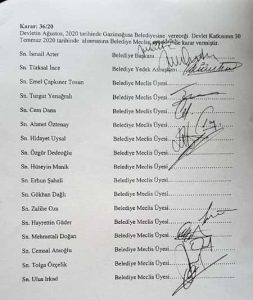 Karar: 36/20
Devletin Ağustos, 2020 tarihinde Gazimağusa Belediyesine vereceği Devlet Katkısının 30
Temmuz 2020 tarihinde alınmasına Belediye Meclis ile karar vermiştir.
Sn. İsmail Arter Belediye Başkanı
Sn. Türksal İnce Belediye Yedek Asbaşkanı
Sn. Emel Çapkıner Tosun Belediye Meclis Üyesi
Sn. Turgut Yenağralı Belediye Meclis Üyesi
Sn. Cem Dana Belediye Meclis Üyesi
Sn. Ahmet Öztenay Belediye Meclis Üyesi
Sn. Hidayet Uysal Belediye Meclis Üyesi
Sn. Özgür Dedeoğlu Belediye Meclis Üyesi
Sn. Hüseyin Manik Belediye Meclis Üyesi
Sn. Erbun Şaheli Belediye Meclis Üyesi
Sn. Gökhan Dağlı Belediye Meclis Üyesi
Sn. Zalihe Oza Belediye Meclis Üyesi
Sn. Hayrettin Güder Belediye Meclis Üyesi
Sn. Mehmetali Doğan Belediye Meclis Üyesi
Sn. Cemsal Ataoğlu Belediye Meclis Üyesi
Sn. Tolga Özçelik Belediye Meclis Üyesi
Sn. Ulaş Belediye Meclis Üyesi